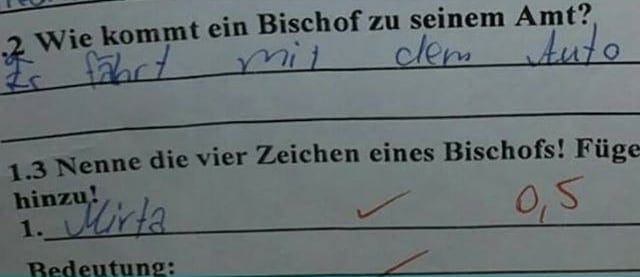 .2 Wie kommt ein Bischof zu seinem Amt?
Er fährt mit dem Auto
1.3 Nenne die vier Zeichen eines Bischofs! Füge
hinzu!
1. Mirta 0,5
Bedeutung: